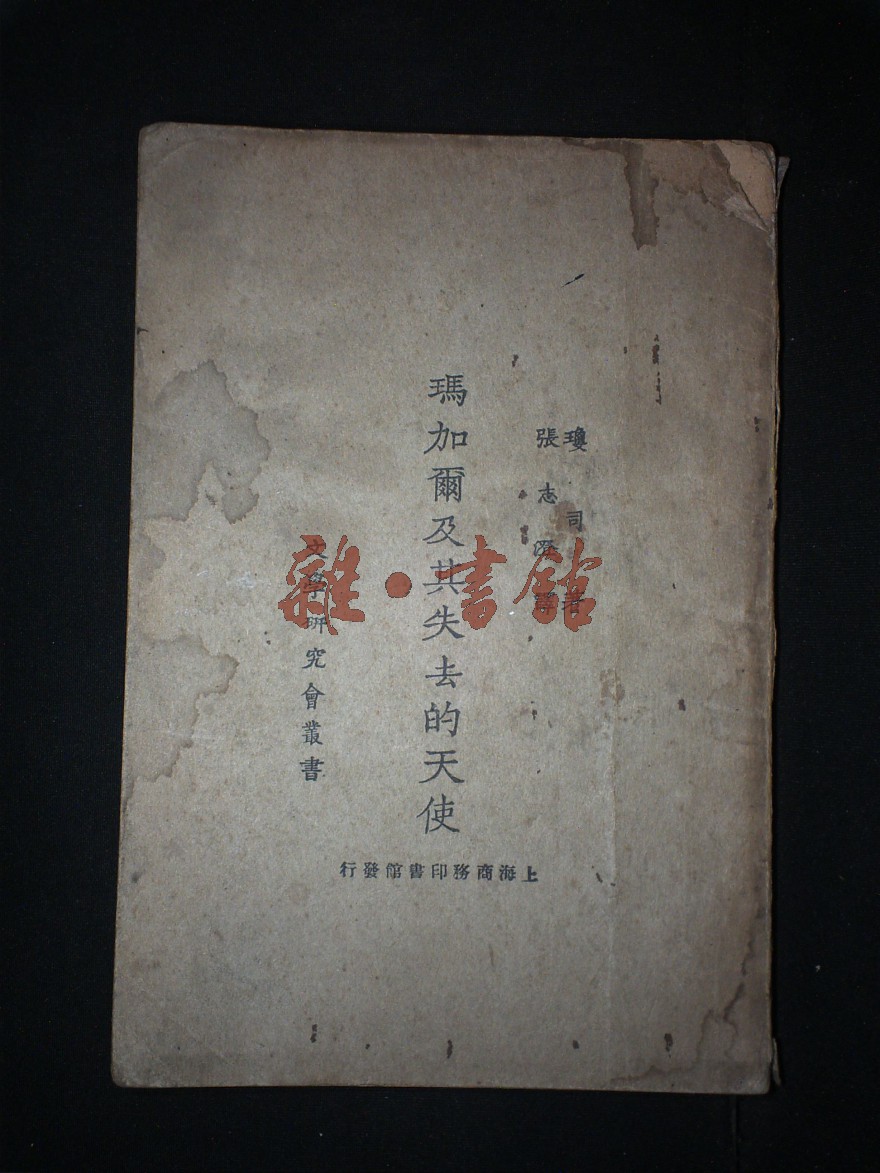 瓊司著
張志澄譯
瑪加爾及其失去的天使
文學研究會叢書
上海商務印書館發行
雜·書館